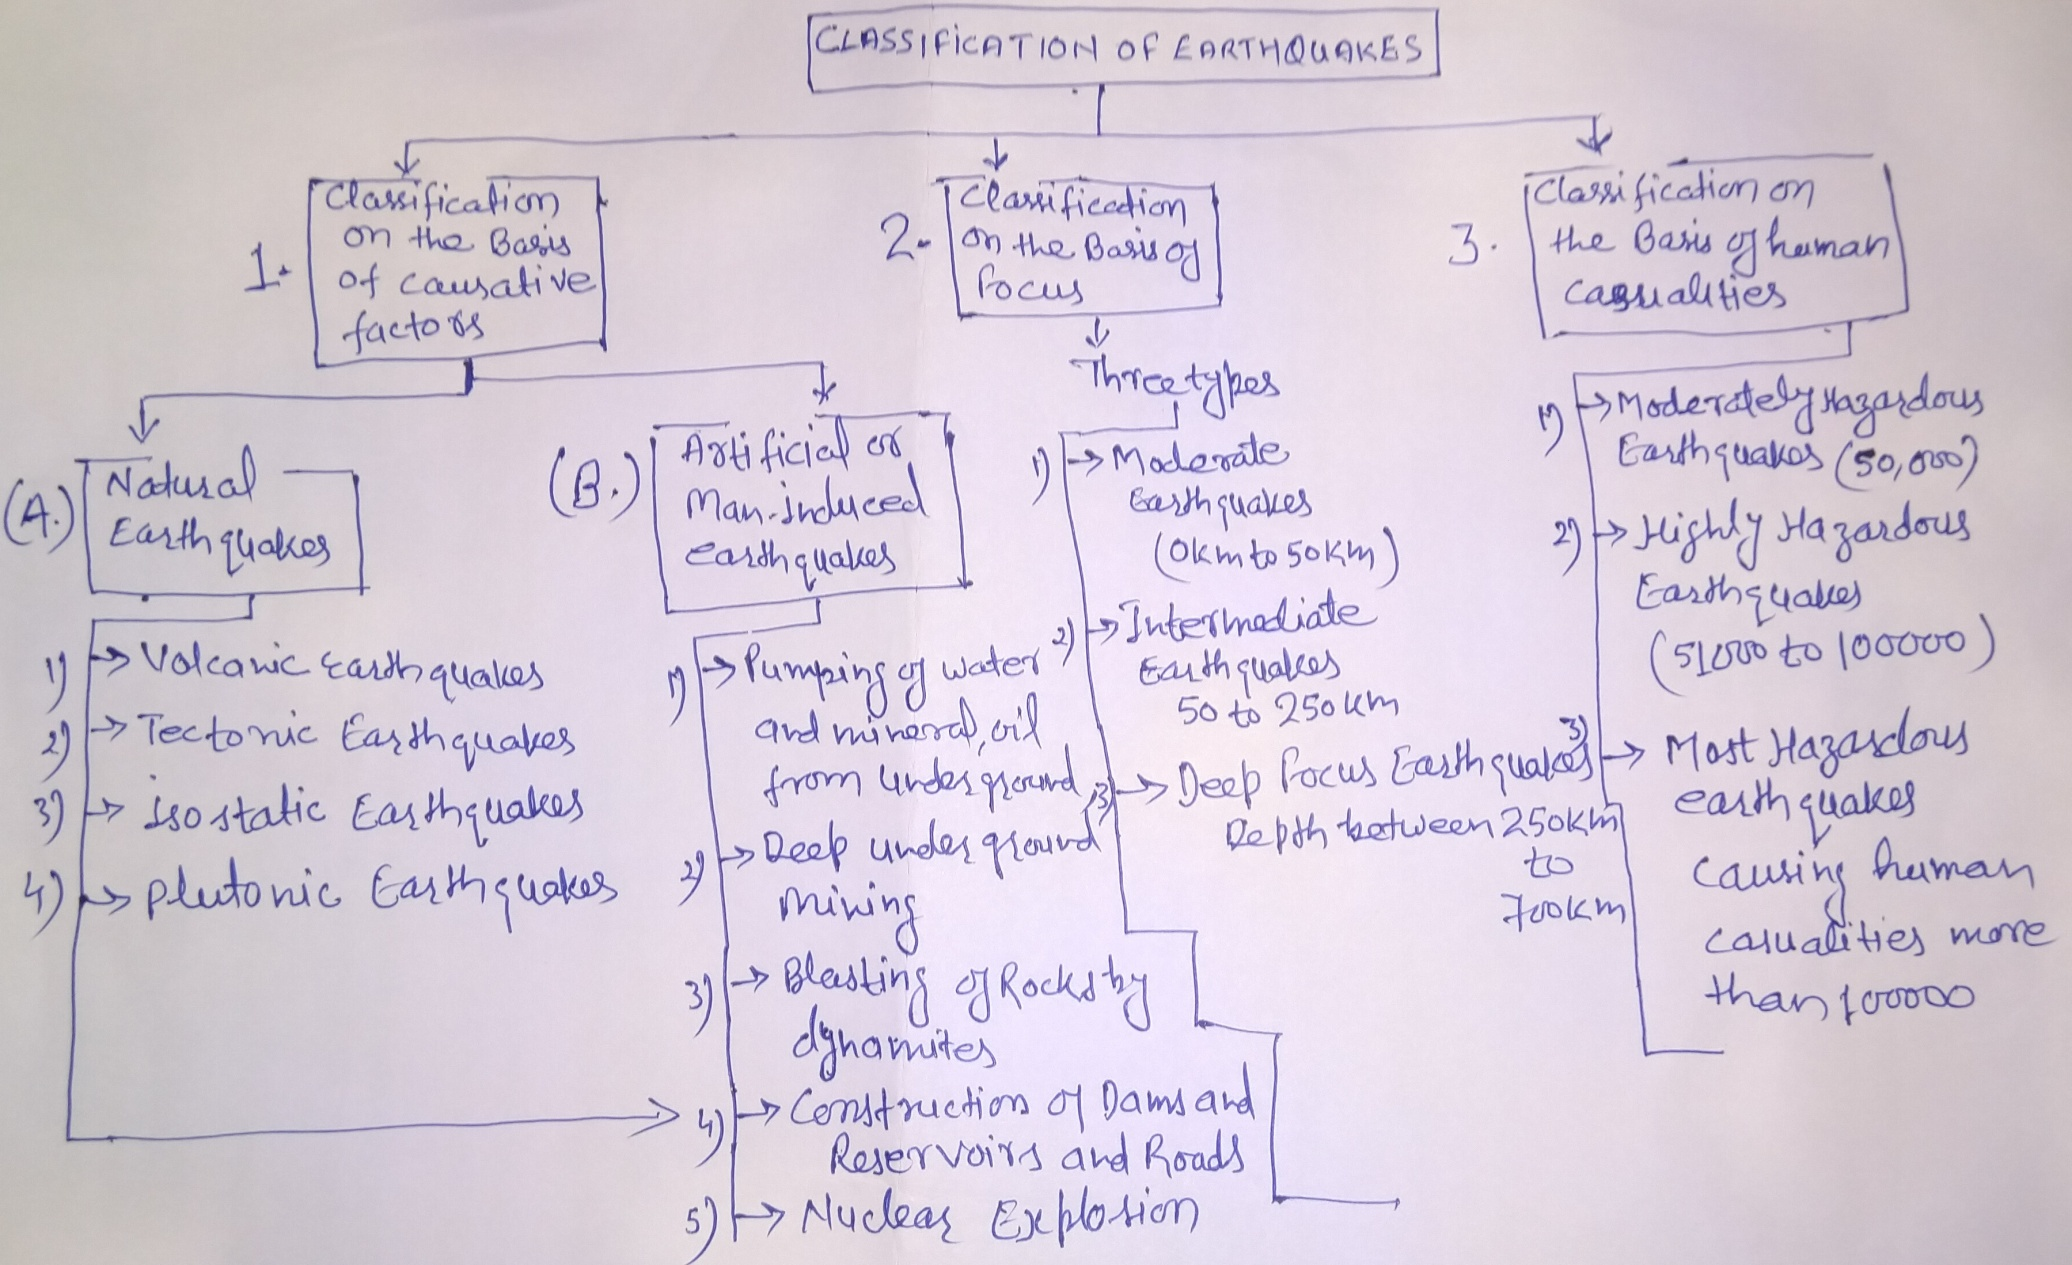 CLASSIFICATION OF EARTHQUAKES
1.
Classification
on the Basis
of causative
factors
(A.)
Natural
Earthquakes
1) Volcanic Earthquakes
2) Tectonic Earthquakes
3) Isostatic Earthquakes
4) Plutonic Earthquakes
(B.)
Artificial or
Man-induced
earthquakes
1) Pumping of water
and mineral, oil
from underground
2) Deep underground
mining
3) Blasting of Rocks by
dynamites
4) Construction of Dams and
Reservoirs and Roads
5) Nuclear Explosion
2.
Classification
on the Basis of
focus
Three types
1) Moderate
Earthquakes
(0km to 50km)
2) Intermediate
Earthquakes
50 to 250km
3) Deep focus Earthquakes
Depth between 250km
to
700km
3.
Classification on
the Basis of human
casualities
1) Moderately Hazardous
Earthquakes (50,000)
2) Highly Hazardous
Earthquakes
(51000 to 100000)
3) Most Hazardous
earthquakes
causing human
casualities more
than 100000